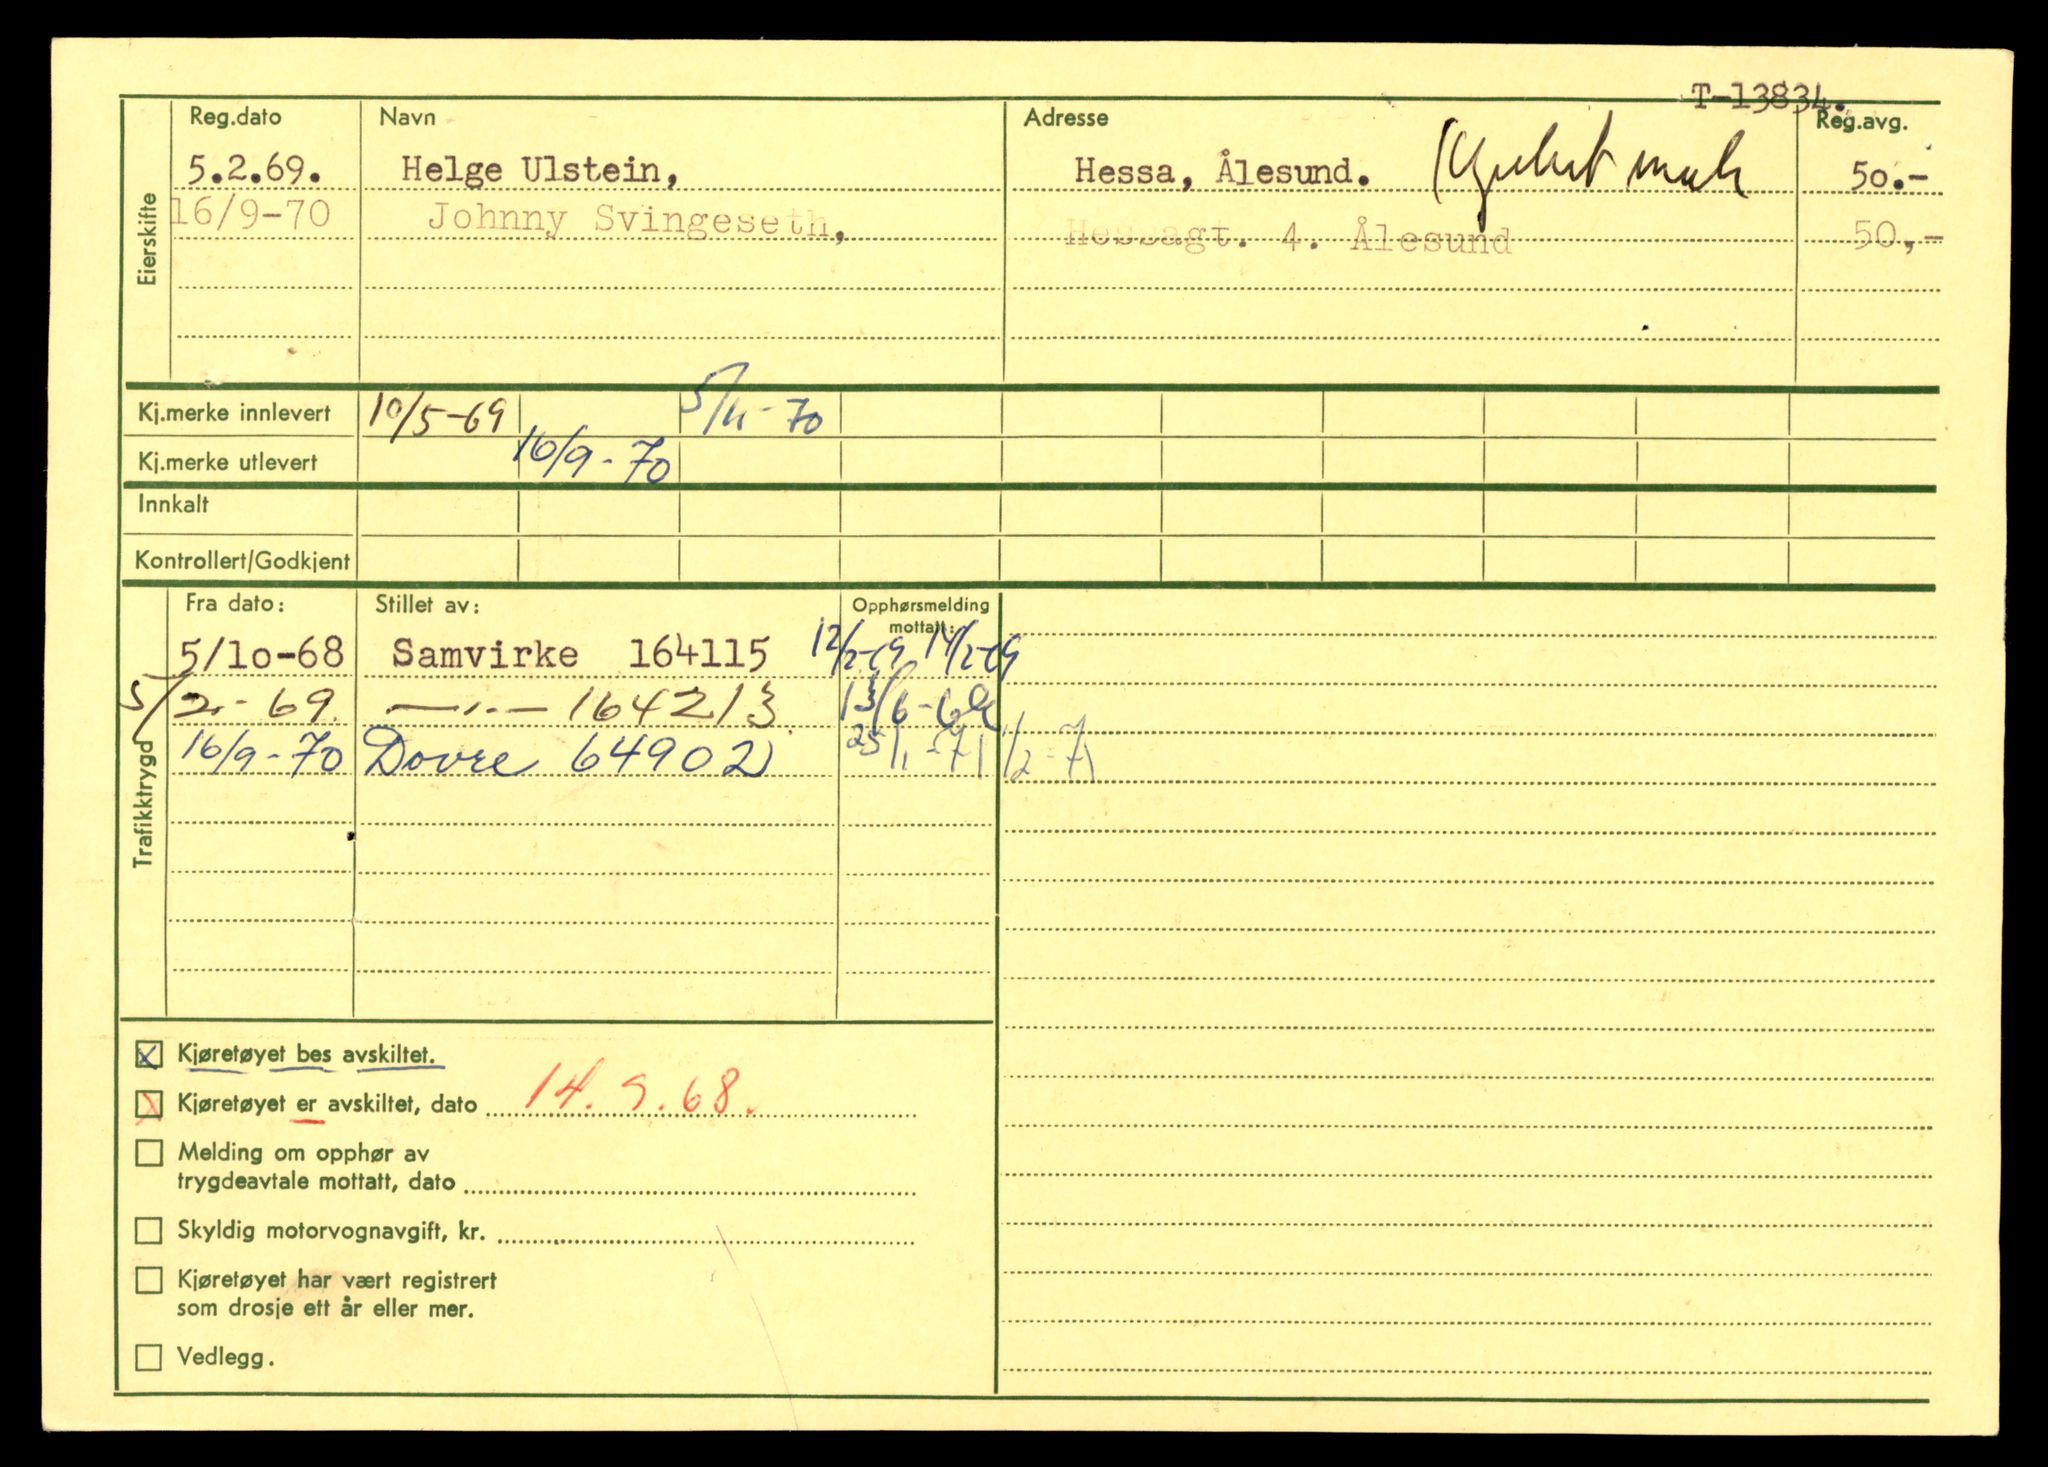 T-13834.
Eierskifte
Reg.dato Navn Adresse Reg.avg.
5.2.69. Helge Ulstein, Hessa, Ålesund. 50.-
16/9-70 Johnny Svingeseth, Hessagt. 4. Ålesund 50,-
Kj.merke innlevert 10/5-69 5/11-70
Kj.merke utlevert 16/9-70
Innkalt
Kontrollert/Godkjent
Trafikktrygd
Fra dato: Stillet av: Opphørsmelding
mottatt:
5/10-68 Samvirke 164115 12/2-69 14/2-69
5/2-69. —"— 164213 13/6-69
16/9-70 Dovre 64902 25/1-71 1/2-71
Kjøretøyet bes avskiltet.
Kjøretøyet er avskiltet, dato 14.9.68.
Melding om opphør av
trygdeavtale mottatt, dato
Skyldig motorvognavgift, kr.
Kjøretøyet har vært registrert
som drosje ett år eller mer.
Vedlegg.